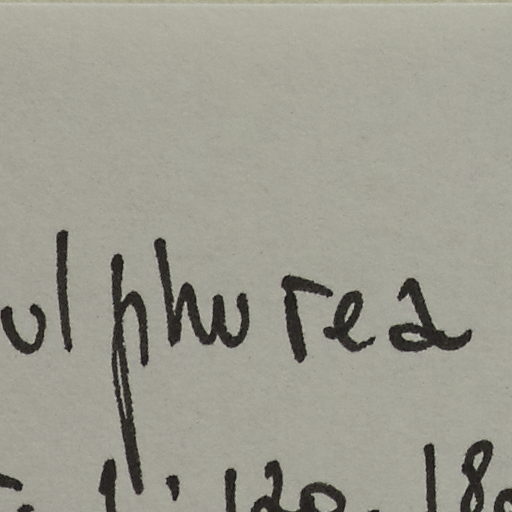 ulphurea
1: 120. 18